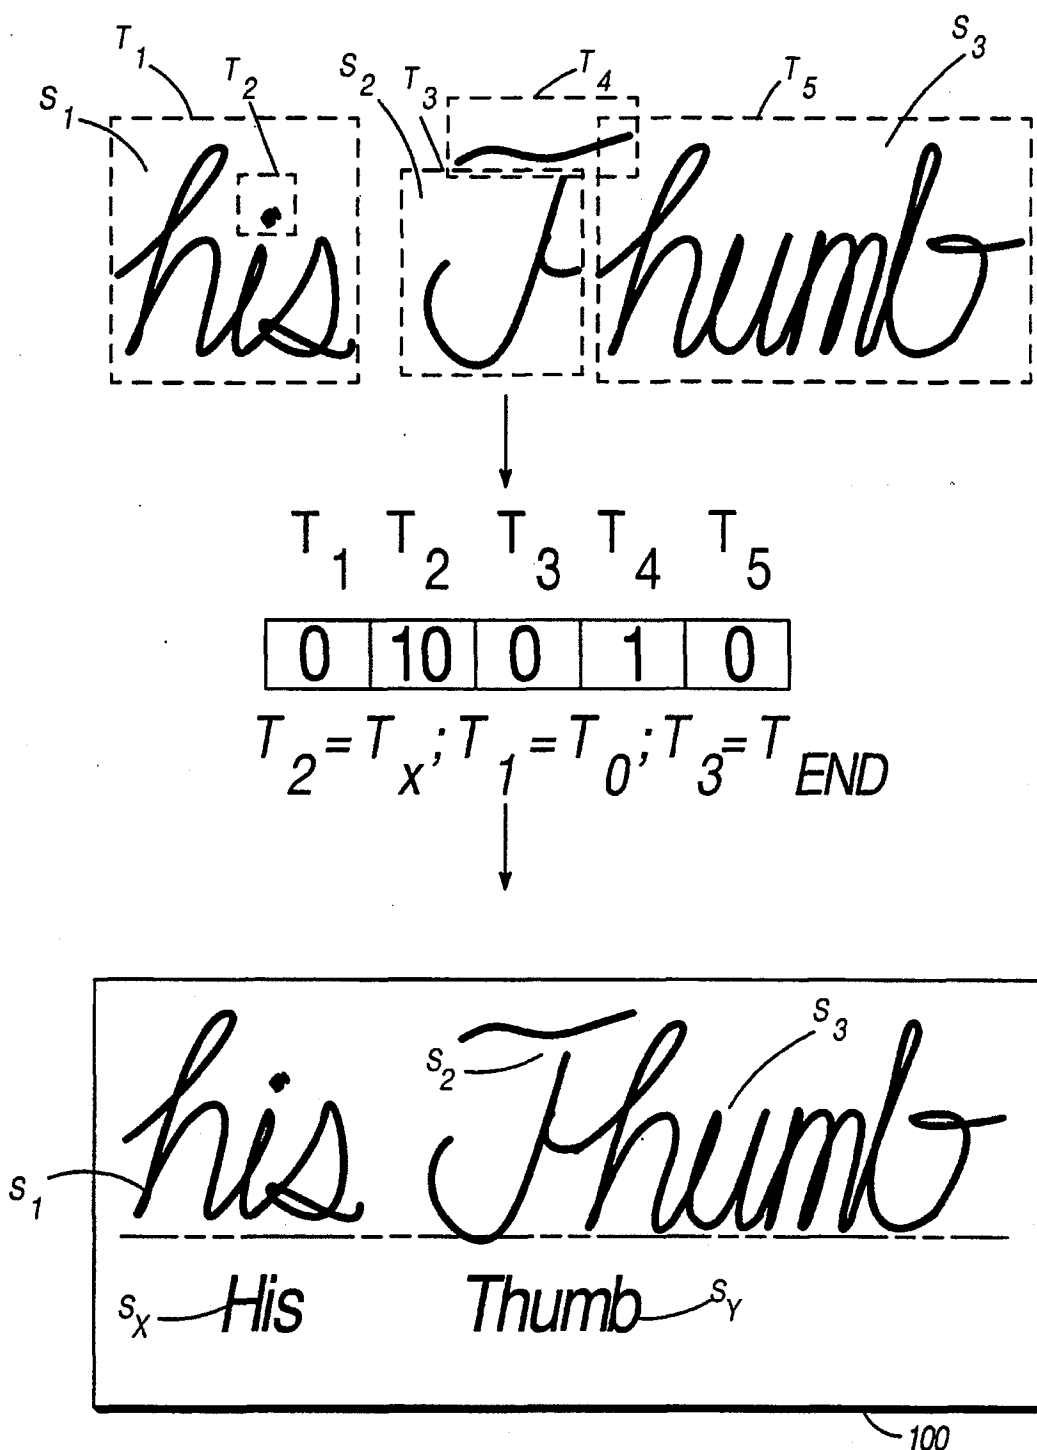 T1 T2 S1 S2 T3 T4 T5 S3
his Thumb
T1 T2 T3 T4 T5
0 10 0 1 0
T2=Tx; T1=T0; T3=TEND
his Thumb
S1 S2 S3
SX His Thumb SY
100